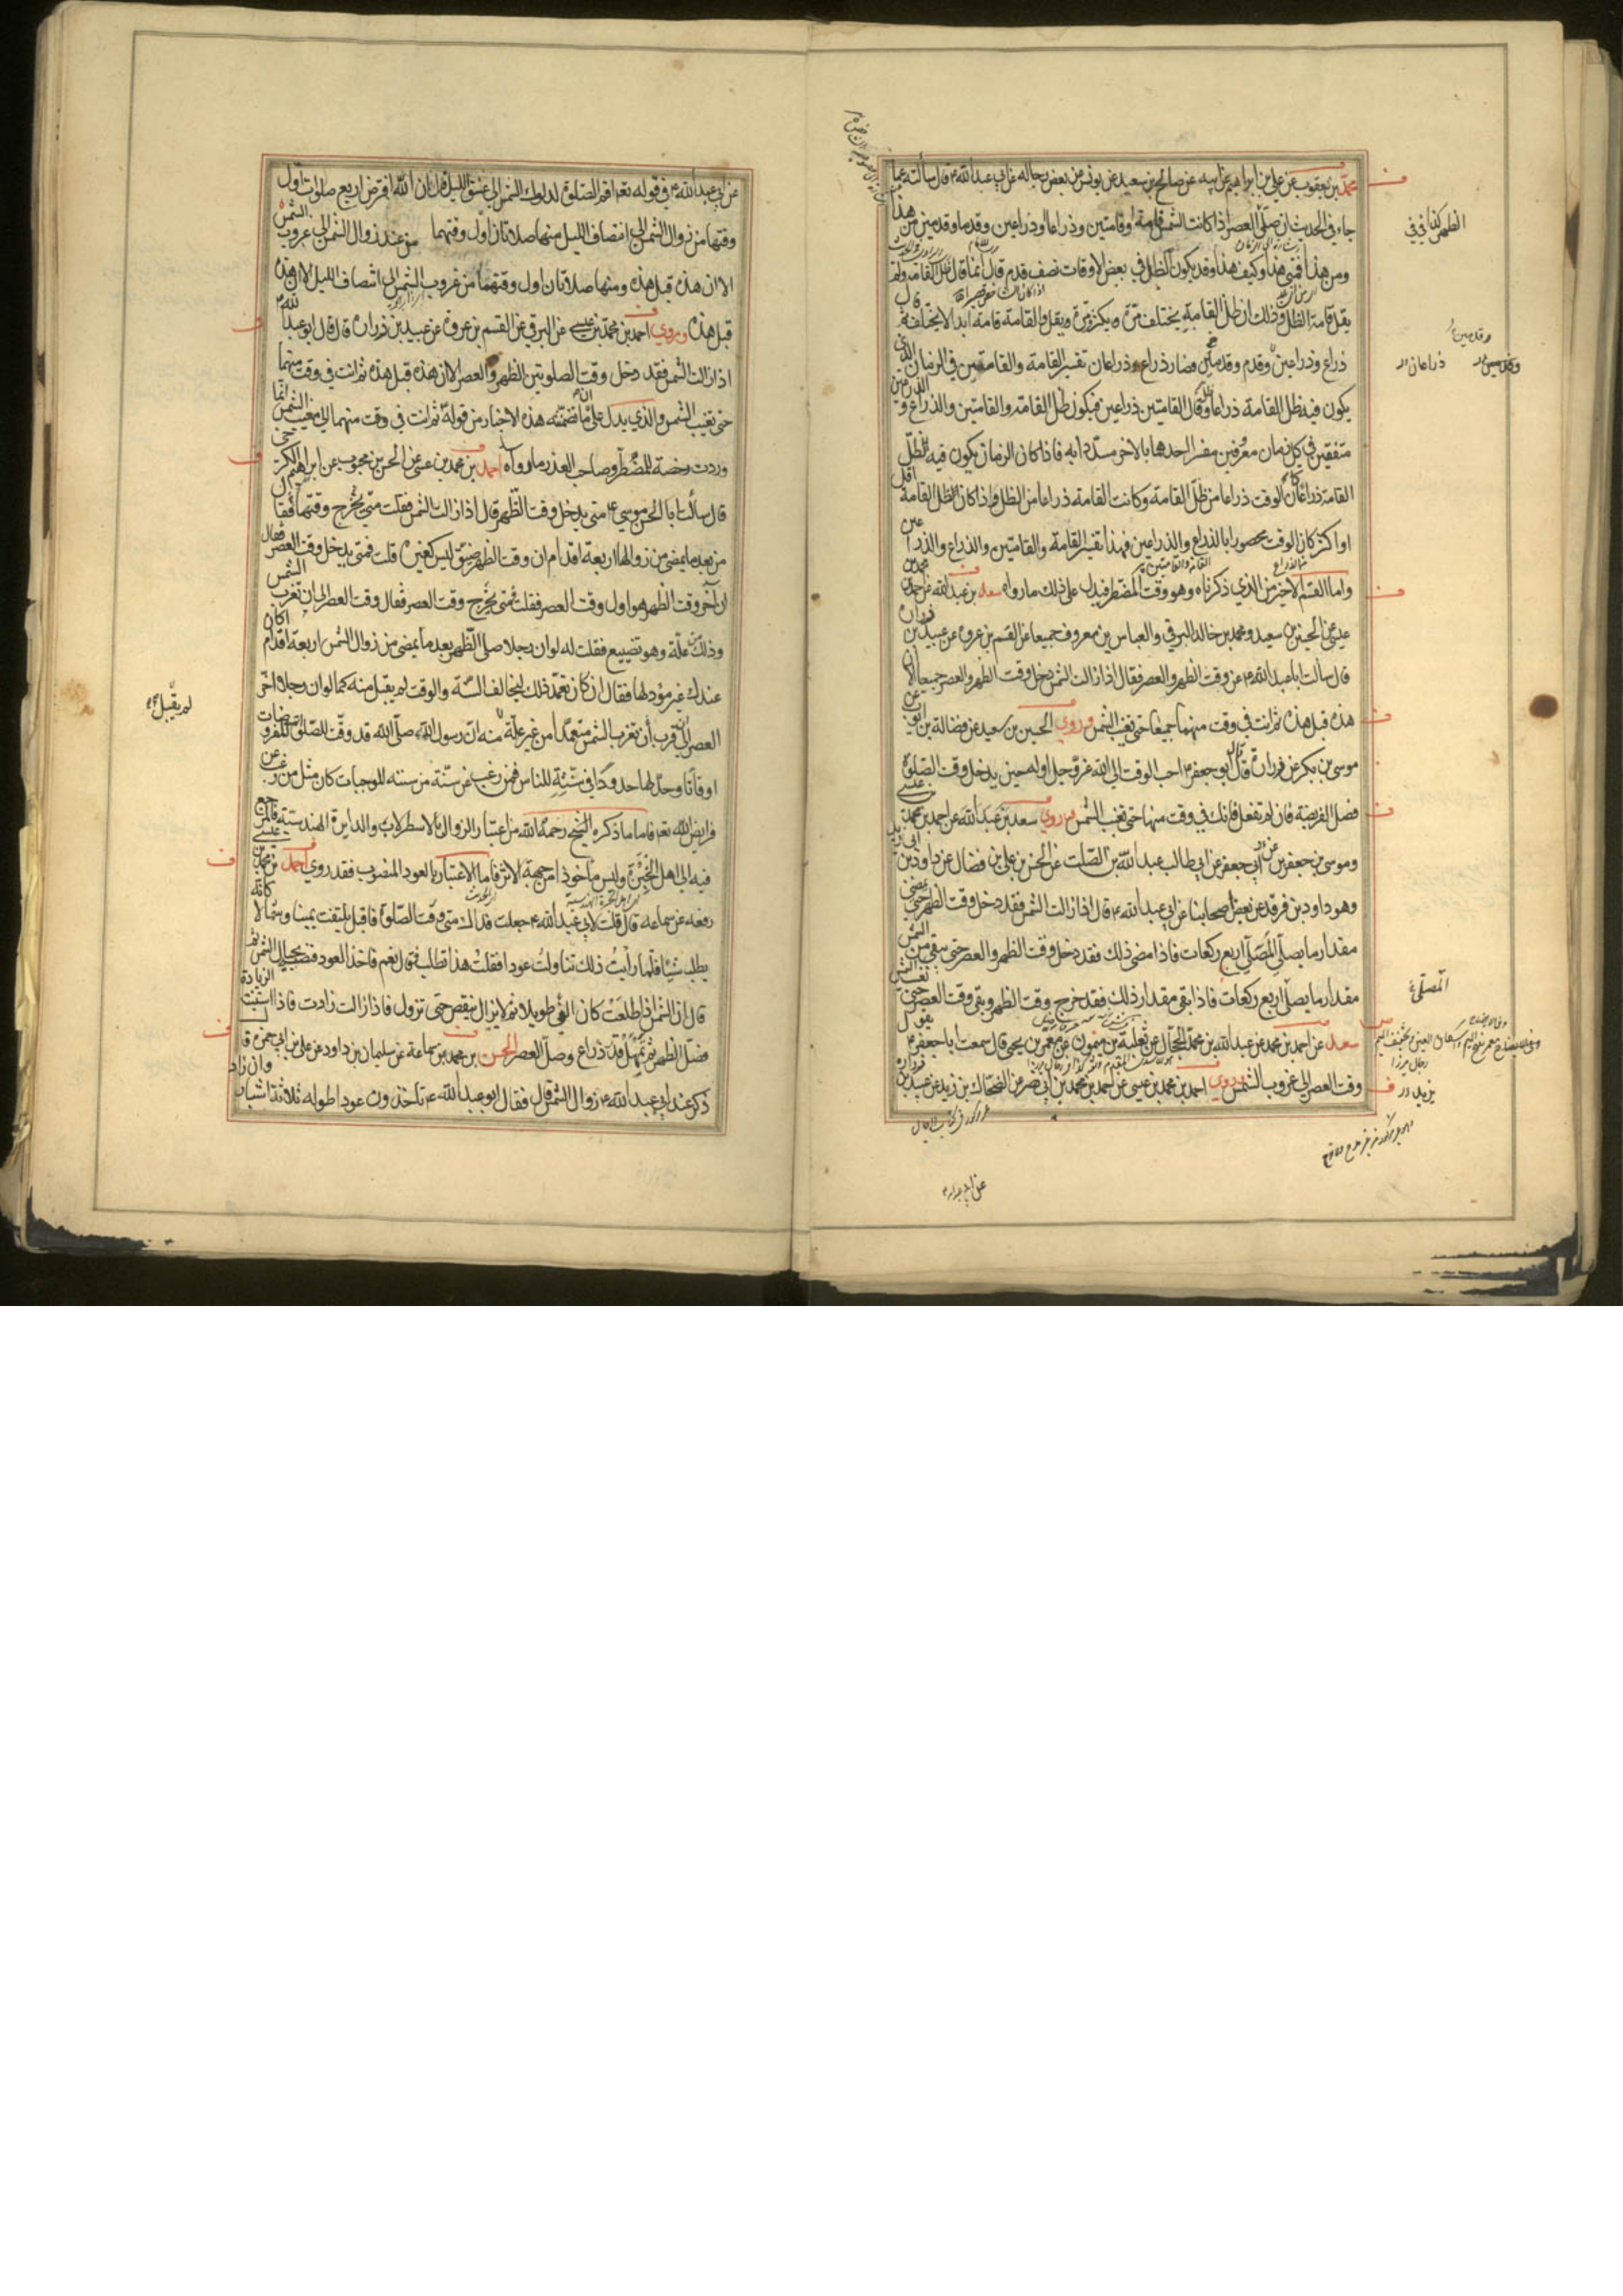 محمد بن يعقوب عن علي بن ابراهيم عن ابيه عن صالح بن سعيد عن يونس عن بعض رجاله عن ابي عبدالله ع قال سألته عما
جاء في الحديث ان صلّ العصر اذا كانت الشمس قامة وقامتين وذراعا وذراعين وقدما وقدمين من هذا
ومن هذا فمتى هذا وكيف هذا وقد يكون الظل في بعض الاوقات نصف قدم قال انما قال ظل القامة ولم
يقل قامة الظل وذلك ان ظل القامة يختلف مرة ويكثر مرة ويقل والقامة قامة ابدا لا يختلف ثم قال
ذراع وذراعين وقدم وقدمين فصار ذراع وذراعان تفسير القامة والقامتين في الزمان الذي
يكون فيه ظل القامة ذراعا وظل القامتين ذراعين فيكون ظل القامة والقامتين والذراع والذراعين
متفقين في كل زمان معروفين مفسرا احدهما بالاخر مسددا به فاذا كان الزمان يكون فيه ظل
القامة ذراعا كان الوقت ذراعا من ظل القامة وكانت القامة ذراعا من الظل واذا كان ظل القامة اقل
او اكثر كان الوقت محصورا بالذراع والذراعين فهذا تفسير القامة والقامتين والذراع والذراعين
واما القسم الاخير من الذي ذكرناه وهو وقت المضطر فيدل على ذلك ما رواه سعد بن عبدالله عن احمد بن محمد بن
عيسى عن الحسين بن سعيد ومحمد بن خالد البرقي والعباس بن معروف جميعا عن القسم بن عروة عن عبيد بن زرارة
قال سألت ابا عبدالله ع عن وقت الظهر والعصر فقال اذا زالت الشمس دخل وقت الظهر والعصر جميعا الا ان
هذه قبل هذه ثم انت في وقت منهما جميعا حتى تغيب الشمس وروى الحسين بن سعيد عن فضالة بن ايوب عن
موسى بن بكر عن زرارة قال قال ابو جعفر ع احب الوقت الى الله عز وجل اوله حين يدخل وقت الصلوة
فصل الفريضة فان لم تفعل فانك في وقت منها حتى تغيب الشمس وروى سعد بن عبدالله عن احمد بن محمد بن عيسى
وموسى بن جعفر بن ابي جعفر عن ابي طالب عبدالله بن الصلت عن الحسن بن علي بن فضال عن داود بن ابي يزيد
وهو داود بن فرقد عن بعض اصحابنا عن ابي عبدالله ع قال اذا زالت الشمس فقد دخل وقت الظهر حتى يمضي
مقدار ما يصلي المصلي اربع ركعات فاذا مضى ذلك فقد دخل وقت الظهر والعصر حتى يبقى من الشمس
مقدار ما يصلي اربع ركعات فاذا بقى مقدار ذلك فقد خرج وقت الظهر وبقى وقت العصر حتى تغيب الشمس
سعد عن احمد بن محمد عن عبدالله بن محمد الحجال عن ثعلبة بن ميمون عن معمر بن يحيى قال سمعت ابا جعفر ع يقول
وقت العصر الى غروب الشمس وروى احمد بن محمد بن عيسى عن احمد بن محمد بن ابي نصر عن الضحاك بن زيد عن عبيد بن زرارة
المصلي
عن ابي عبدالله ع في قوله تعم اقم الصلوة لدلوك الشمس الى غسق الليل قال ان الله افترض اربع صلوات اول
وقتها من زوال الشمس الى انتصاف الليل منها صلاتان اول وقتهما من عند زوال الشمس الى غروب الشمس
الا ان هذه قبل هذه ومنها صلاتان اول وقتهما من غروب الشمس الى انتصاف الليل الا ان هذه
قبل هذه وروى احمد بن محمد بن عيسى عن البرقي عن القسم بن عروة عن عبيد بن زرارة قال قال ابو عبدالله ع
اذا زالت الشمس فقد دخل وقت الصلوتين الظهر والعصر الا ان هذه قبل هذه ثم انت في وقت منهما
حتى تغيب الشمس والذي يدل على ما تضمنته هذه الاخبار من قوله ثم انت في وقت منهما الى مغيب الشمس انما
وردت رخصة للمضطر وصاحب العذر ما رواه احمد بن محمد بن عيسى عن الحسن بن محبوب عن ابراهيم الكرخي
قال سألت ابا الحسن موسى ع متى يدخل وقت الظهر قال اذا زالت الشمس فقلت متى يخرج وقتها فقال
من بعد ما يمضي من زوالها اربعة اقدام ان وقت الظهر ضيق ليس كغيره قلت فمتى يدخل وقت العصر فقال
ان آخر وقت الظهر هو اول وقت العصر فقلت فمتى يخرج وقت العصر فقال وقت العصر الى ان تغرب الشمس
وذلك من علة وهو تضييع فقلت له لو ان رجلا صلى الظهر بعد ما يمضي من زوال الشمس اربعة اقدام اكان
عندك غير مؤد لها فقال ان كان تعمد ذلك ليخالف السنة والوقت لم يقبل منه كما لو ان رجلا اخر
العصر الى قرب ان تغرب الشمس متعمدا من غير علة لم يقبل منه ان رسول الله صلى الله قد وقت للصلوة المفروضات
اوقاتا وحد لها حدودا في سنته للناس فمن رغب عن سنة من سننه الموجبات كان مثل من رغب عن
فرايض الله تعم فاما ما ذكره الشيخ رحمه الله من اعتبار الزوال بالاسطرلاب والدايرة الهندسية فالمرجع
فيه الى اهل الخبرة وليس ماخوذا من جهة الاثر فاما الاعتبار بالعود المنصوب فقد روى احمد بن محمد بن عيسى
رفعه عن سماعة قال قلت لابي عبدالله ع جعلت فداك متى وقت الصلوة فاقبل يلتفت يمينا وشمالا كانه
يطلب شيئا فلما رأيت ذلك تناولت عودا فقلت هذا تطلب قال نعم فاخذ العود فنصب بحيال الشمس ثم
قال ان الشمس اذا طلعت كان الفيء طويلا ثم لا يزال ينقص حتى تزول فاذا زالت زادت فاذا استبنت الزيادة
فصل الظهر ثم تمهل قدر ذراع وصل العصر الحسن بن محمد بن سماعة عن سليمان بن داود عن علي بن ابي حمزة قال
ذكر عند ابي عبدالله ع زوال الشمس قال فقال ابو عبدالله ع تاخذون عودا طوله ثلاثة اشبار وان زاد
لم يقبل